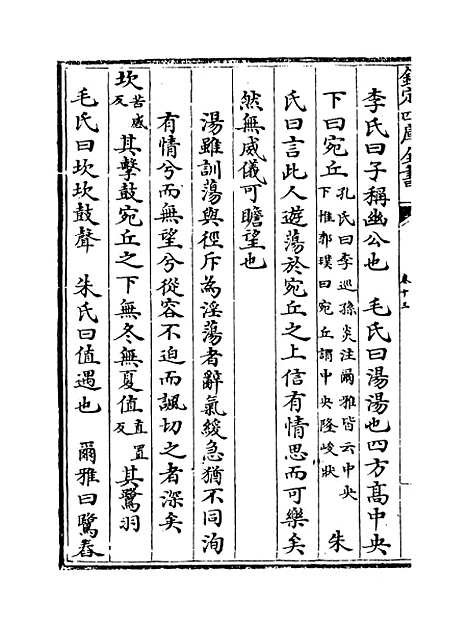 欽定四庫全書
卷十三
李氏曰子稱幽公也　毛氏曰湯湯也四方高中央
下曰宛丘孔氏曰李巡孫炎注爾雅皆云中央下惟郭璞曰宛丘謂中央隆峻狀　朱
氏曰言此人遊蕩於宛丘之上信有情思而可樂矣
然無威儀可瞻望也
湯雖訓蕩與徑斥為淫蕩者辭氣緩急猶不同洵
有情兮而無望兮從容不迫而諷切之者深矣
坎苦感反其擊鼓宛丘之下無冬無夏值直置反其鷺羽
毛氏曰坎坎鼓聲　朱氏曰值遇也　爾雅曰鷺舂